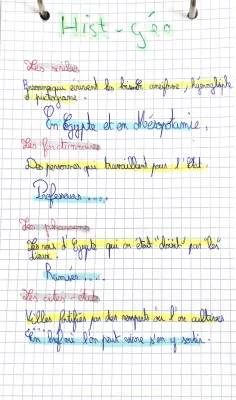 Hist - géo
Les scribes
Personne qui écrivent les
et pictogramme.
En Egypte et en Mésopotamie.
Les fonctionnaires
Des personnes qui travaillent pour l'état.
Professeurs.....
Les pharaons
Les rois d'Egypte qui on était "choisit" par "les
dieux".
Ramsès....
Les cités - états
Villes fortifiés par des remparts ou l'on cultive
l'on peut même s'en y